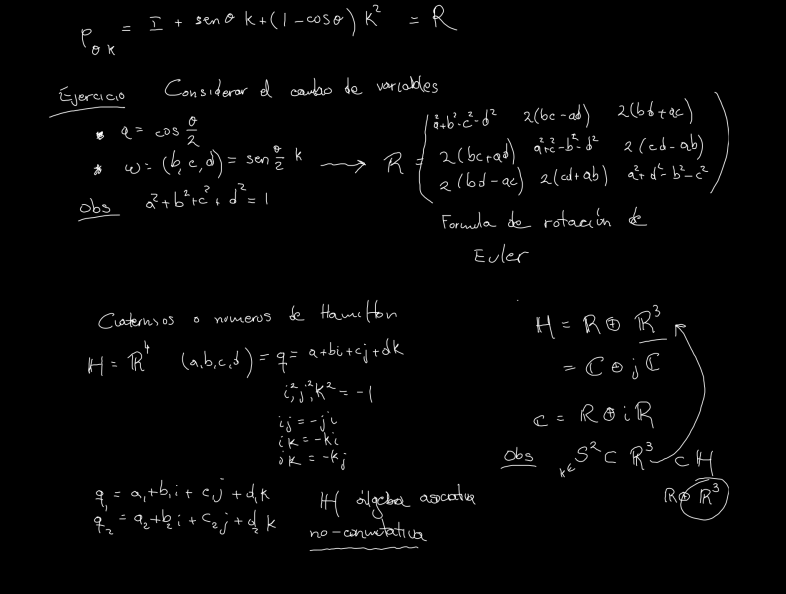 ρ_θK = I + senθ K + (1 - cosθ) K² = R
Ejercicio Considerar el cambio de variables
• a = cos θ/2
• ω = (b, c, d) = sen θ/2 k → R = ( a²+b²-c²-d² 2(bc-ad) 2(bd+ac)
2(bc+ad) a²+c²-b²-d² 2(cd-ab)
2(bd-ac) 2(cd+ab) a²+d²-b²-c² )
Obs a²+b²+c²+d²=1
Formula de rotación de
Euler
Cuaternios o numeros de Hamilton
H = R⁴ (a,b,c,d) = q = a+bi+cj+dk
i², j², k² = -1
ij = -ji
ik = -ki
jk = -kj
H = R ⊕ R³
= C ⊕ j C
C = R ⊕ i R
Obs k∈ S² ⊂ R³ ⊂ H
R ⊕ R³
q₁ = a₁+b₁i + c₁j + d₁k
q₂ = a₂+b₂i + c₂j + d₂k
H álgebra asociativa
no-conmutativa